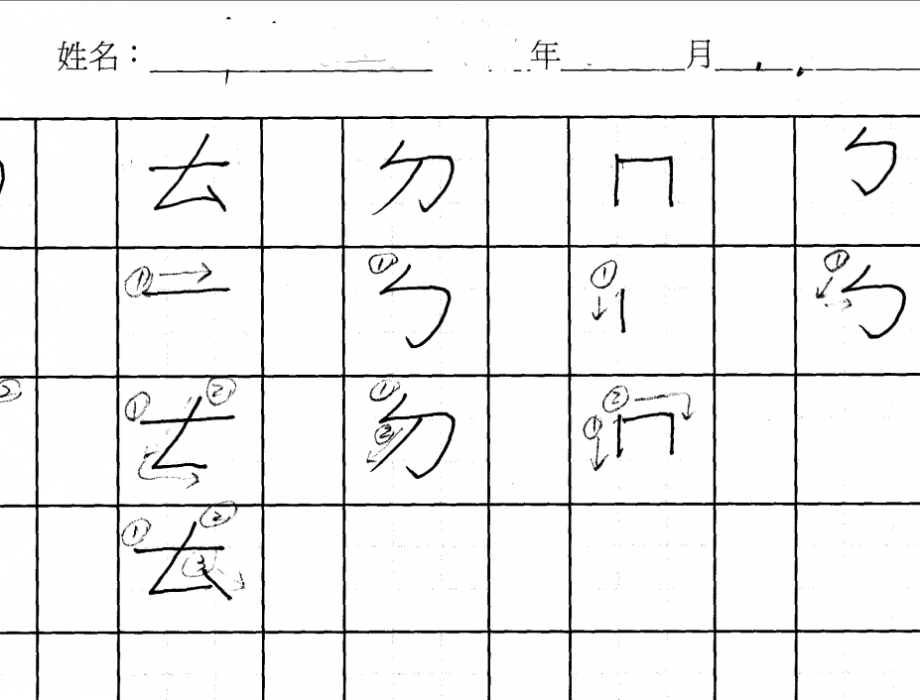 姓名：年 月
ㄊ ㄉ ㄇ ㄅ
① ① ㄅ ① ① ㄅ
① ② ① ② ㄉ ① ② ㄇ
① ② ③ ㄊ